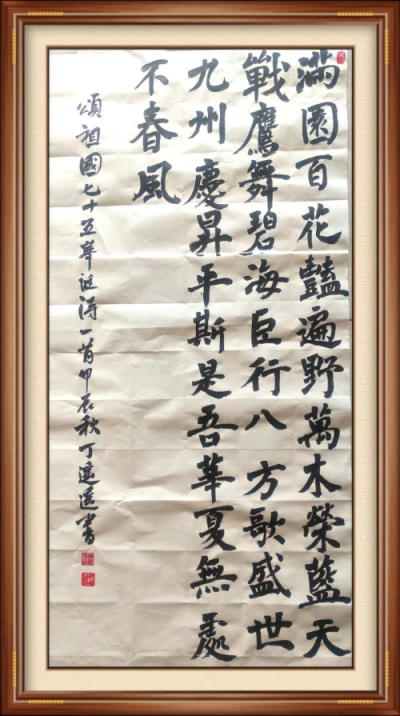 滿園百花豔遍野萬木榮藍天
戰鷹舞碧海臣行八方歌盛世
九州慶昇平斯是吾華夏無處
不春風
頌祖國七十五華誕詩一首甲辰秋丁遠書